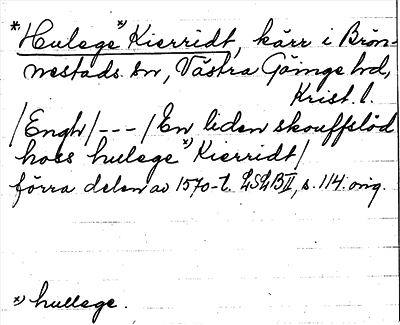 *Hulege *) Kierridt, kärr i Brön-
nestads sn, Västra Göinge hd,
Krist. l.
/Engh/ --- /En liden skouffslöd
hoss hulege *) Kierridt/
förra delen av 1570-t. LSLB II, s. 114. orig.
*) hullege.